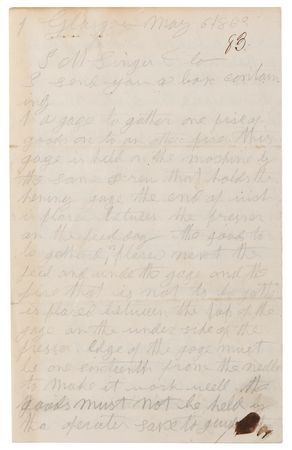 1 Glasgow May 6 1862
93.
I M Singer & Co
I send you a box contain
ing
1 a gage to gather one piece of
goods on to an other piece this
gage is held on the mashine by
the same skrew that holds the
heming gage the end of it is
is place between the pressor
an the feed dog the goods to
be gathered is place next the
feed and under the gage and the
piece that is not to be gathe
is placed between the top of the
gage an the under side of the
pressor Edge of the gage must
be one sixteenth from the needle
to make it work well the
goods must not be held by
the operater save to guide